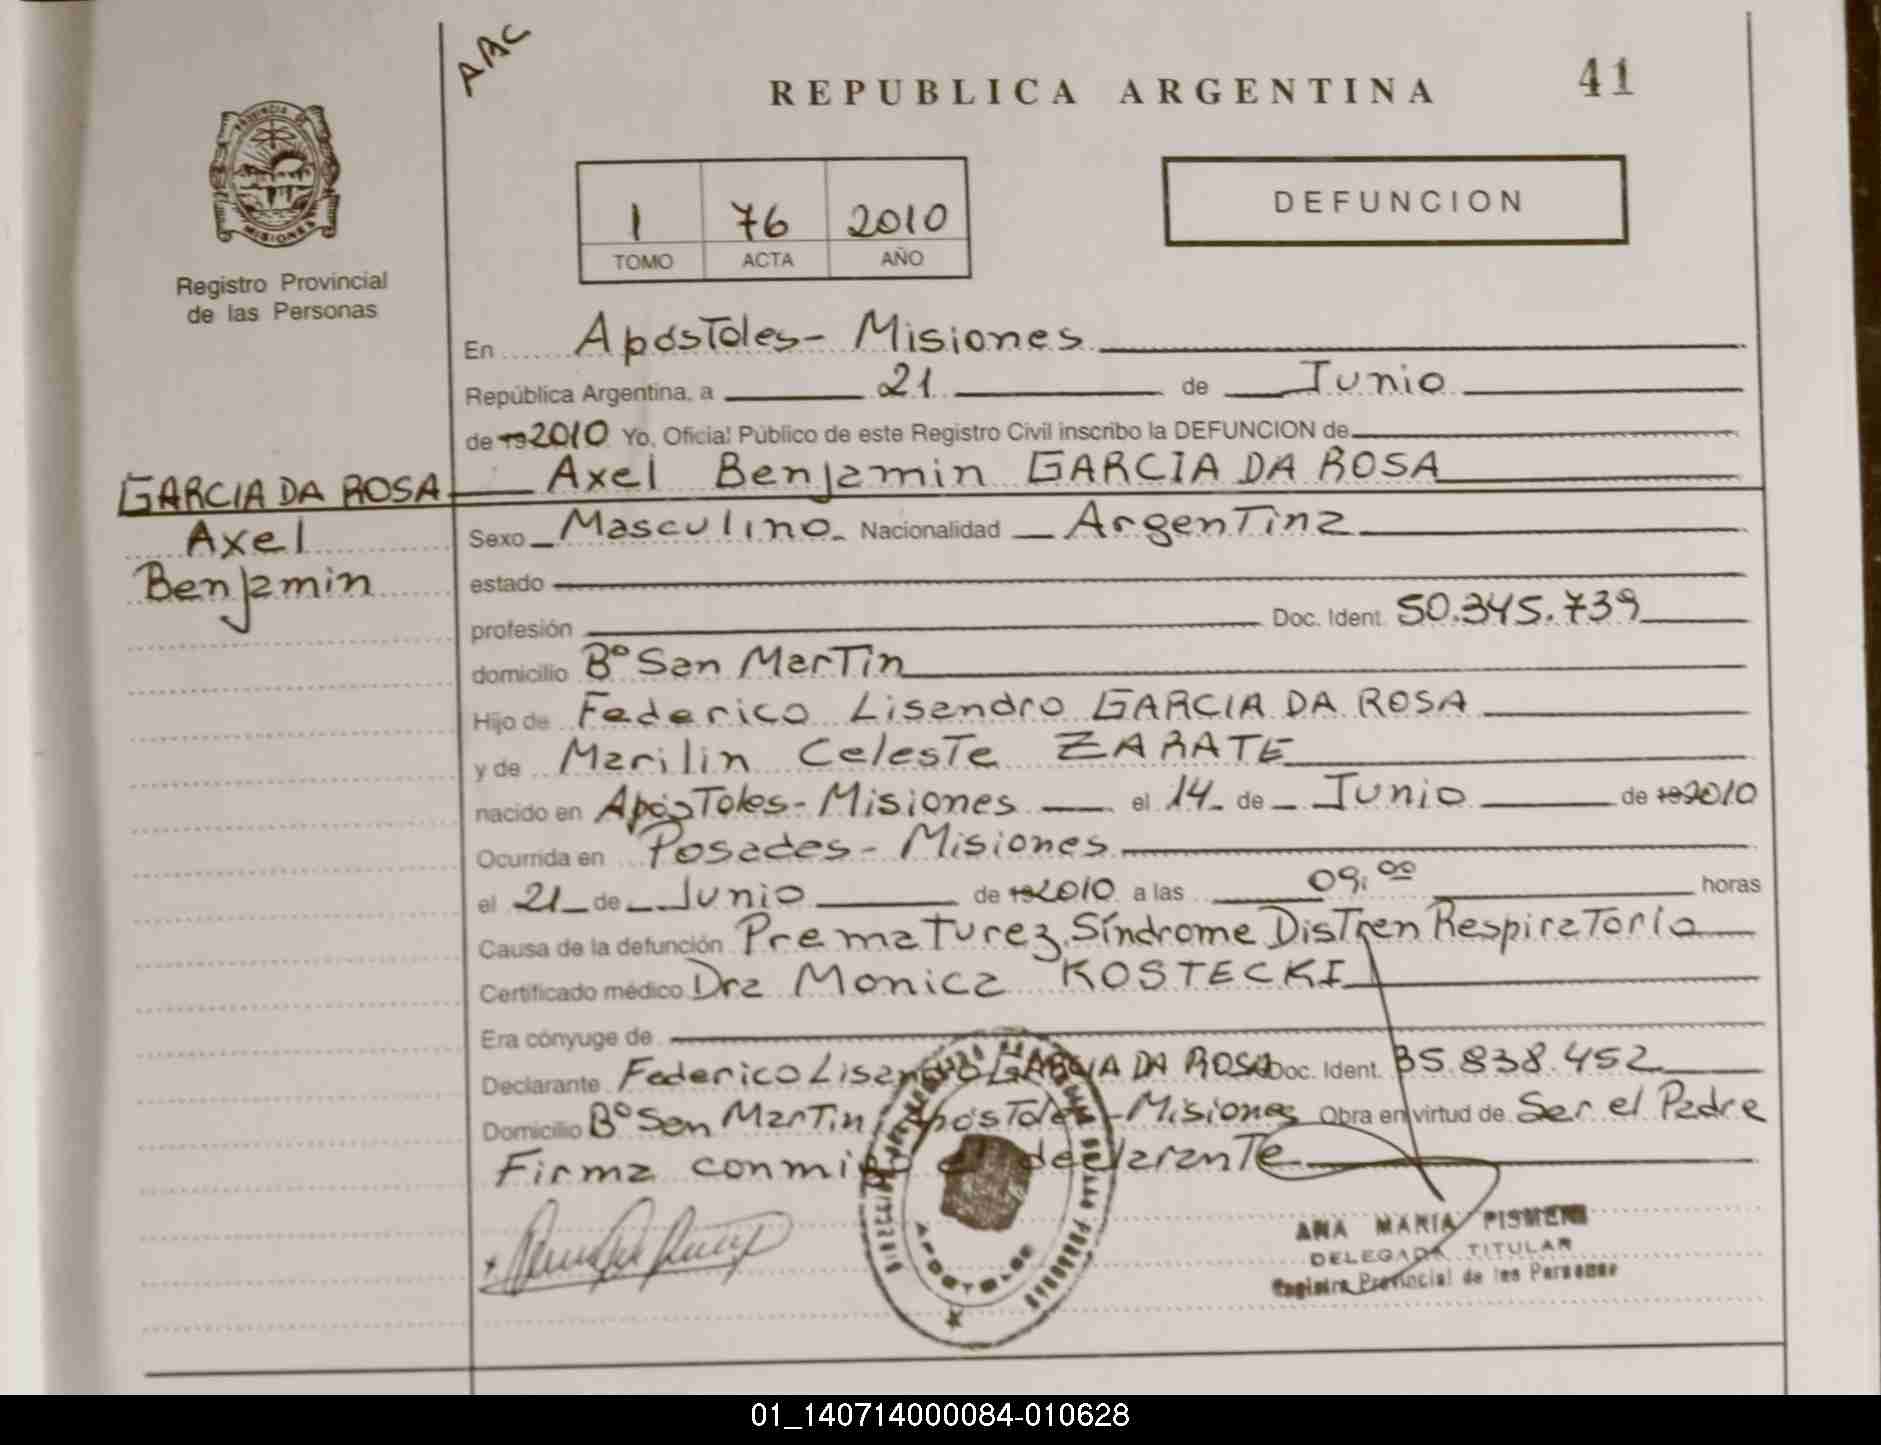 AAC
REPUBLICA ARGENTINA
41
PROVINCIA DE
MISIONES
Registro Provincial
de las Personas
1 76 2010
TOMO ACTA AÑO
DEFUNCION
En Apóstoles - Misiones
República Argentina, a 21 de Junio
de 19 2010 Yo, Oficial Público de este Registro Civil inscribo la DEFUNCION de
Axel Benjamin GARCIA DA ROSA
GARCIA DA ROSA
Axel
Benjamin
Sexo Masculino. Nacionalidad Argentina
estado
profesión Doc. Ident. 50.345.739
domicilio Bº San Martin
Hijo de Federico Lisandro GARCIA DA ROSA
y de Marilin Celeste ZARATE
nacido en Apóstoles - Misiones el 14 de Junio de 19 2010
Ocurrida en Posadas - Misiones
el 21 de Junio de 19 2010 a las 09.00 horas
Causa de la defunción Prematurez, Síndrome Distren Respiratorio
Certificado médico Dra Monica KOSTECKI
Era cónyuge de
Declarante Federico Lisandro GARCIA DA ROSA Doc. Ident. 35.838.452
Domicilio Bº San Martin, Apóstoles - Misiones Obra en virtud de Ser el Padre
Firma conmigo el declarante
ANA MARIA
DELEGADA TITULAR
Registro Provincial de las Personas
APOSTOLES
01_140714000084-010628